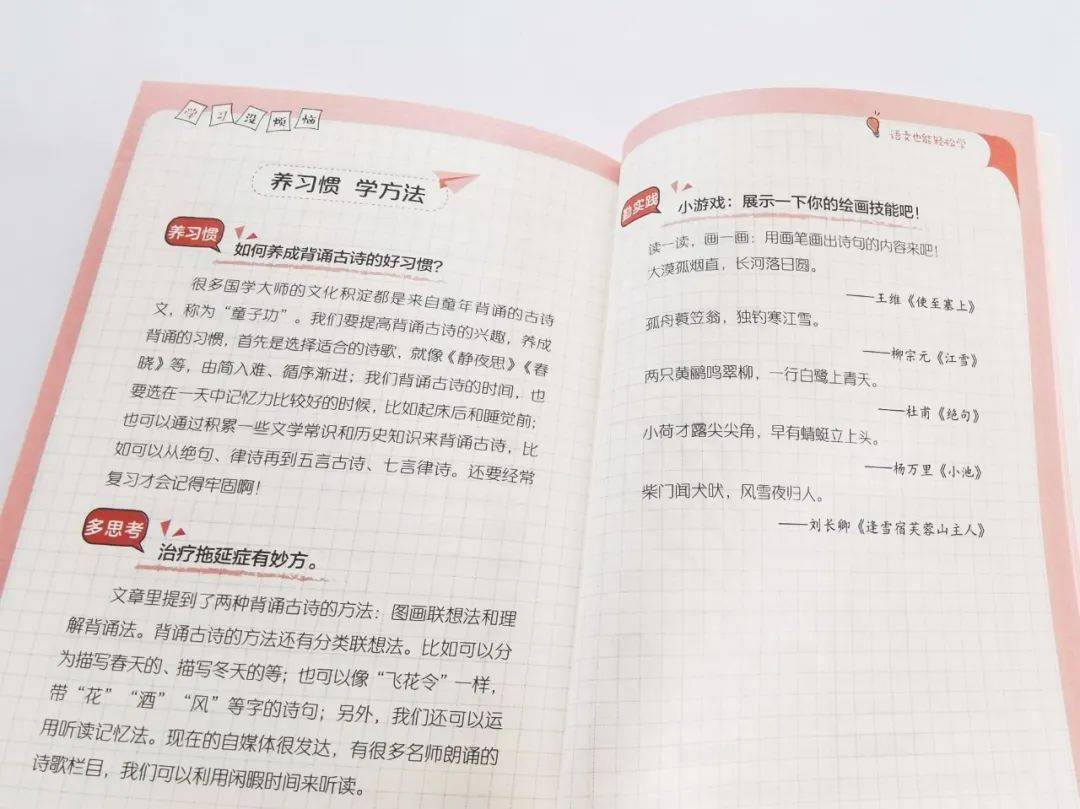 学习没烦恼
养习惯 学方法
养习惯
如何养成背诵古诗的好习惯？
很多国学大师的文化积淀都是来自童年背诵的古诗
文，称为“童子功”。我们要提高背诵古诗的兴趣，养成
背诵的习惯，首先是选择适合的诗歌，就像《静夜思》《春
晓》等，由简入难、循序渐进；我们背诵古诗的时间，也
要选在一天中记忆力比较好的时候，比如起床后和睡觉前；
也可以通过积累一些文学常识和历史知识来背诵古诗，比
如可以从绝句、律诗再到五言古诗、七言律诗。还要经常
复习才会记得牢固啊！
多思考
治疗拖延症有妙方。
文章里提到了两种背诵古诗的方法：图画联想法和理
解背诵法。背诵古诗的方法还有分类联想法。比如可以分
为描写春天的、描写冬天的等；也可以像“飞花令”一样，
带“花”“酒”“风”等字的诗句；另外，我们还可以运
用听读记忆法。现在的自媒体很发达，有很多名师朗诵的
诗歌栏目，我们可以利用闲暇时间来听读。
语文也能轻松学
勤实践
小游戏：展示一下你的绘画技能吧！
读一读，画一画：用画笔画出诗句的内容来吧！
大漠孤烟直，长河落日圆。
——王维《使至塞上》
孤舟蓑笠翁，独钓寒江雪。
——柳宗元《江雪》
两只黄鹂鸣翠柳，一行白鹭上青天。
——杜甫《绝句》
小荷才露尖尖角，早有蜻蜓立上头。
——杨万里《小池》
柴门闻犬吠，风雪夜归人。
——刘长卿《逢雪宿芙蓉山主人》